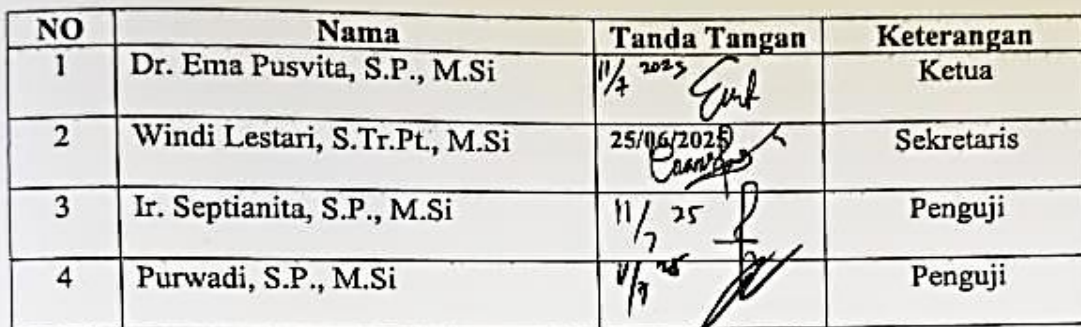 NO Nama Tanda Tangan Keterangan
1 Dr. Ema Pusvita, S.P., M.Si 11/7 2025 Ketua
2 Windi Lestari, S.Tr.Pt., M.Si 25/06/2025 Sekretaris
3 Ir. Septianita, S.P., M.Si 11/7 25 Penguji
4 Purwadi, S.P., M.Si Penguji